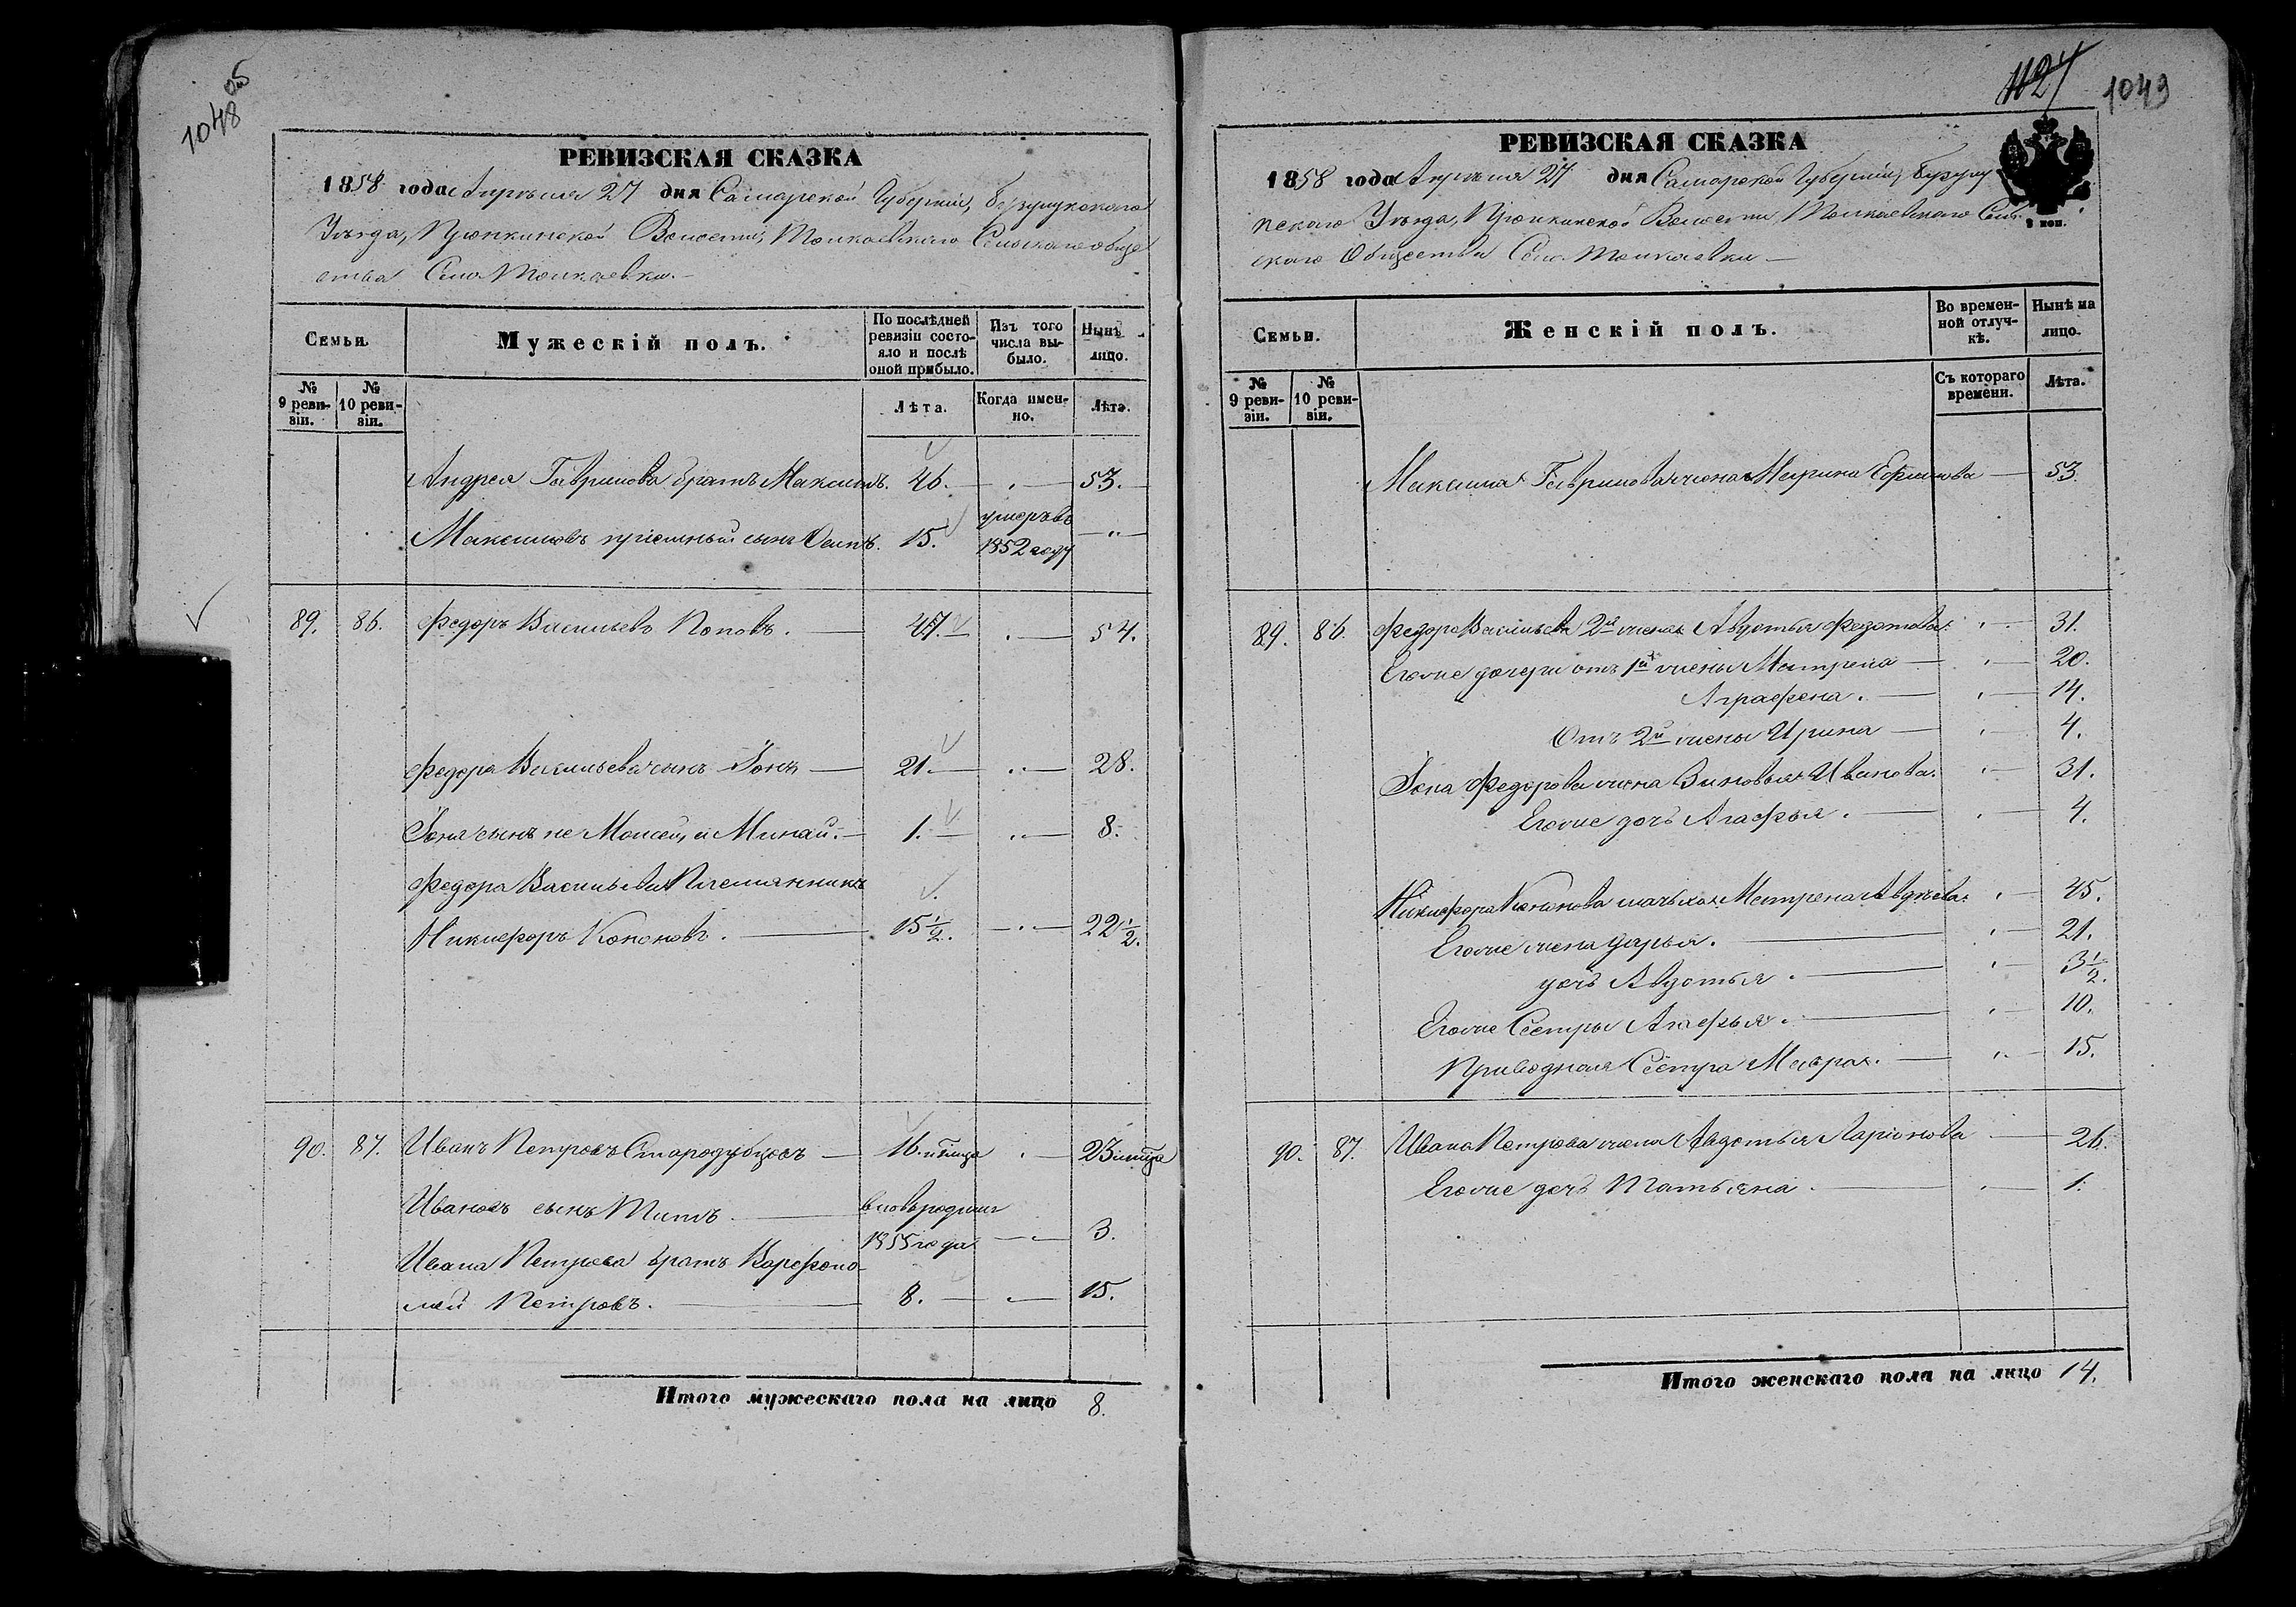 1048 об
РЕВИЗСКАЯ СКАЗКА
1858 года Апрѣля 27 дня Самарской Губерніи, Бузулукскаго
Уѣзда, Пронькинской Волости, Толкаевскаго Сельскаго обще
ства Села Толкаевки.
Семьи.
Мужескій полъ.
По послѣдней ревизіи состояло и послѣ оной прибыло.
Изъ того числа выбыло.
Нынѣ лицо.
№ 9 ревизіи.
№ 10 ревизіи.
Лѣта.
Когда именно.
Лѣта.
Андрея Гаврилова братъ Максимъ. 46. 53.
Максимовъ пріемный сынъ Осипъ. 15. умеръ въ 1852 году
89. 86. Федоръ Васильевъ Поповъ. 47. 54.
Федора Васильева сынъ Іона 21. 28.
Іона сынъ не Моисей, а Минай. 1. 8.
Федора Васильева Племянникъ
Никифоръ Кононовъ. 15 1/2. 22 1/2.
90. 87. Иванъ Петровъ Стародубцовъ 16. 23
Ивановъ сынъ Титъ. вновь 1855 года 3.
Ивана Петрова братъ Варфоло-
мей Петровъ. 8. 15.
Итого мужескаго пола на лицо 8.
1127 1049
РЕВИЗСКАЯ СКАЗКА
1858 года Апрѣля 27 дня Самарской Губерніи, Бузулу
кскаго Уѣзда, Пронькинской Волости, Толкаевскаго Сель
скаго Общества Села Толкаевки
9 коп.
Семьи.
Женскій полъ.
Во временной отлучкѣ.
Нынѣ на лицо.
№ 9 ревизіи.
№ 10 ревизіи.
Съ котораго времени.
Лѣта.
Максима Гаврилова жена Ирина Ефимова 53.
89. 86. Федора Васильева 2я жена Авдотья Федотова. 31.
Его же дочери отъ 1й жены Матрена 20.
Аграфена. 14.
Отъ 2й жены Ирина 4.
Іона Федорова жена Зиновья Иванова. 31.
Его же дочь Агафья. 4.
Никифора Кононова мачиха Матрена Авдѣева. 45.
Его же жена Дарья. 21.
дочь Авдотья. 3 1/2.
Его же Сестры Агафья. 10.
Приводная Сестра Мавра. 15.
90. 87. Ивана Петрова жена Авдотья Ларіонова 26.
Его же дочь Татьяна. 1.
Итого женскаго пола на лицо 14.